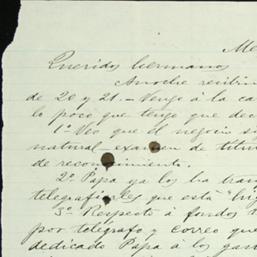 Me
Queridos hermanos
Anoche recibim
de 20 y 21. - Vengo á la ca
lo poco que tengo que dec
1º Veo que el negocio si
natural examen de títu
de reconocimiento.
2º Papa ya los ha tran
telegrafio les que está "bi
3º Respecto á fondos t
por telégrafo y correo que
dedicado Papa á los gan